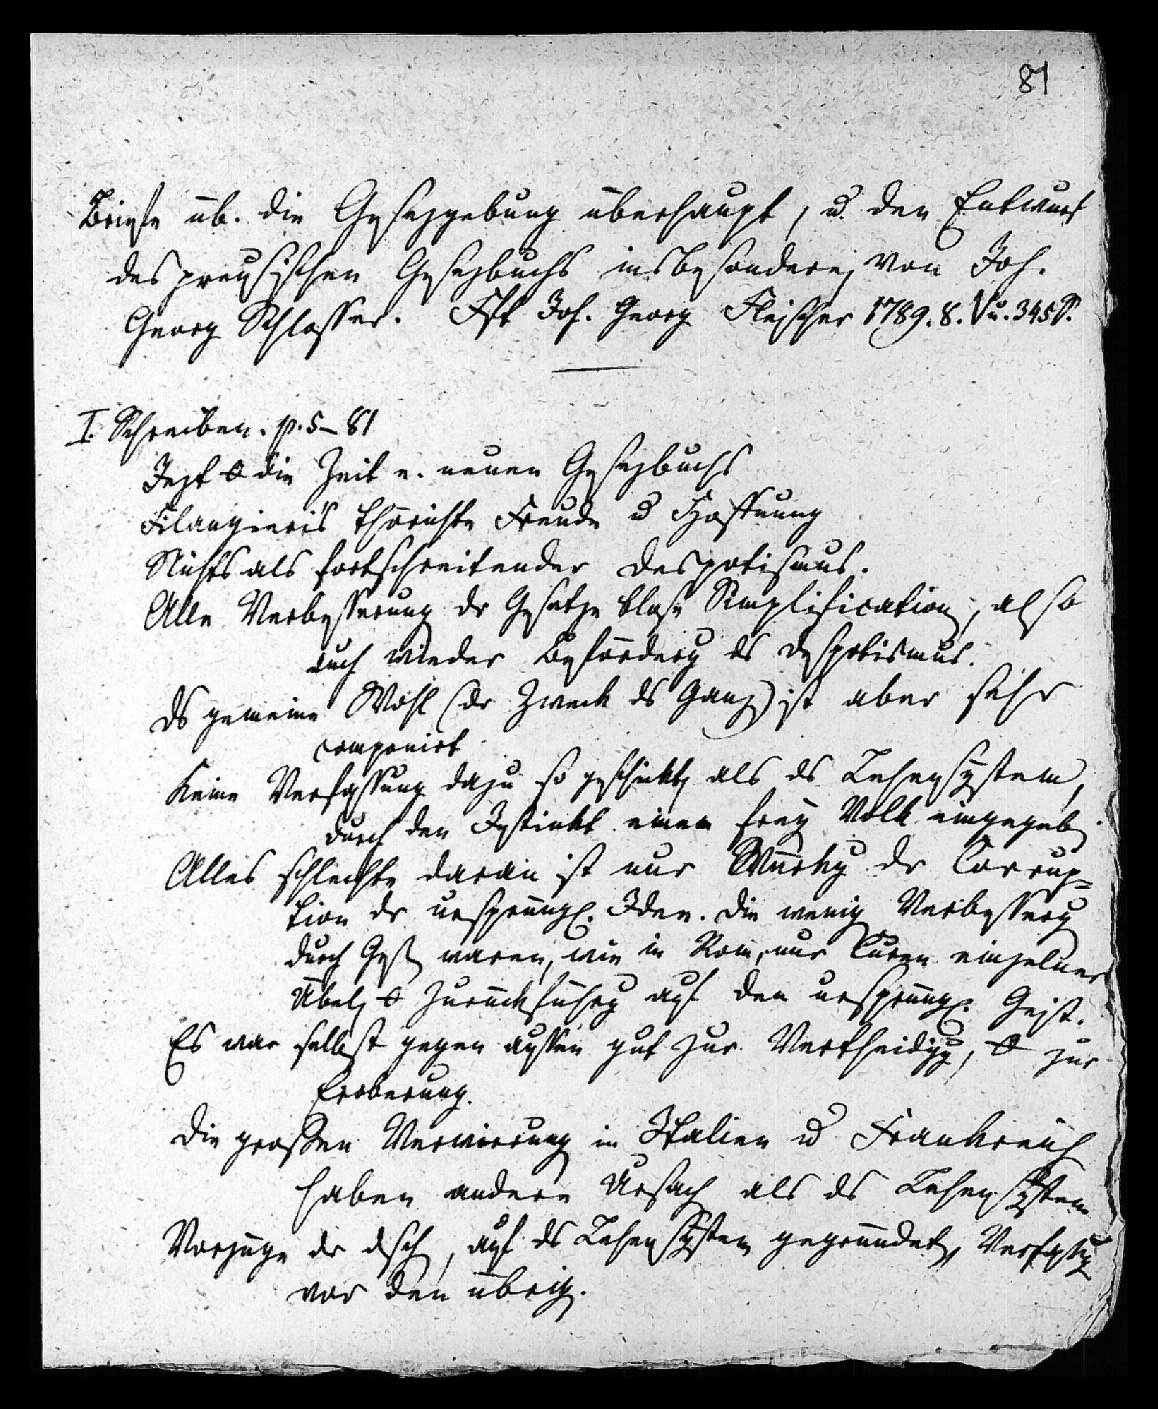 81
Briefe üb. die Gesezgebung überhaupt, u. den Entwurf
des preusischen Gesezbuchs insbesondere, von Joh.
Georg Schlosser. Fft Joh. Georg Fleischer 1789. 8. V u. 345 S.
I. Schreiben. p. 5–81
Jezt die Zeit e. neuen Gesezbuchs
Filangieris thörichte Freude u Hoffnung
Nichts als fortschreitender Despotismus.
Alle Verbesserung dr Gesetze blose Simplification, also
auch wieder Beförderg ds Despotismus.
Ds gemeine Wohl (dr Zweck ds Ganz) ist aber sehr
componirt
Keine Verfassung dazu so geschickt als ds Lehensystem,
durch den Instinkt einem frey Volk eingegeb.
Alles schlechte daran ist nur Wirkg dr Corrup=
tion dr ursprüngl. Idee. Die wenig Verbesserg
durch Ges waren, wie in Rom, nur Curen einzelner
Übel, Zurückführg auf den ursprüngl. Geist.
Es war selbst gegen aussen gut zur Vertheidigg, zur
Eroberung.
Die grossen Verwirrung in Italien u Frankreich
haben andere Ursach als ds Lehensystem
Vorzüge dr dsch, auf ds Lehensystem gegründet Verfassg
vor den übrig.